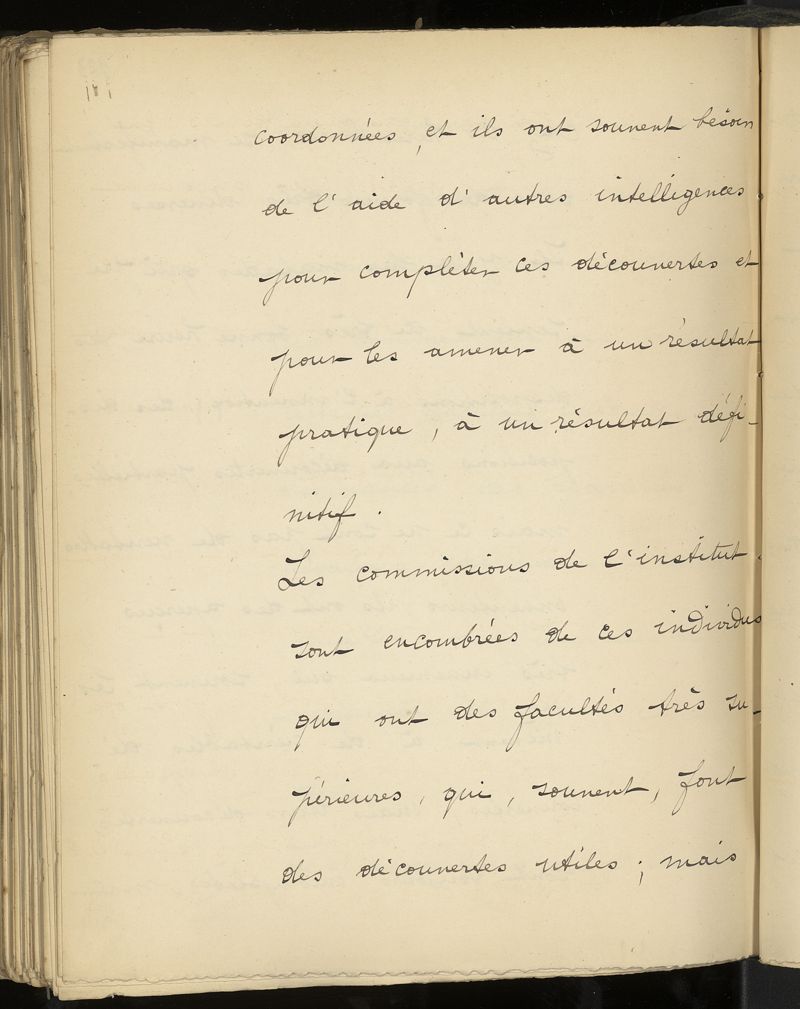 coordonnées, et ils ont souvent besoin
de l'aide d'autres intelligences
pour compléter ces découvertes et
pour les amener à un résultat
pratique, à un résultat défi-
nitif.
Les commissions de l'institut
sont encombrées de ces individus
qui ont des facultés très su-
périeures, qui, souvent, font
des découvertes utiles ; mais